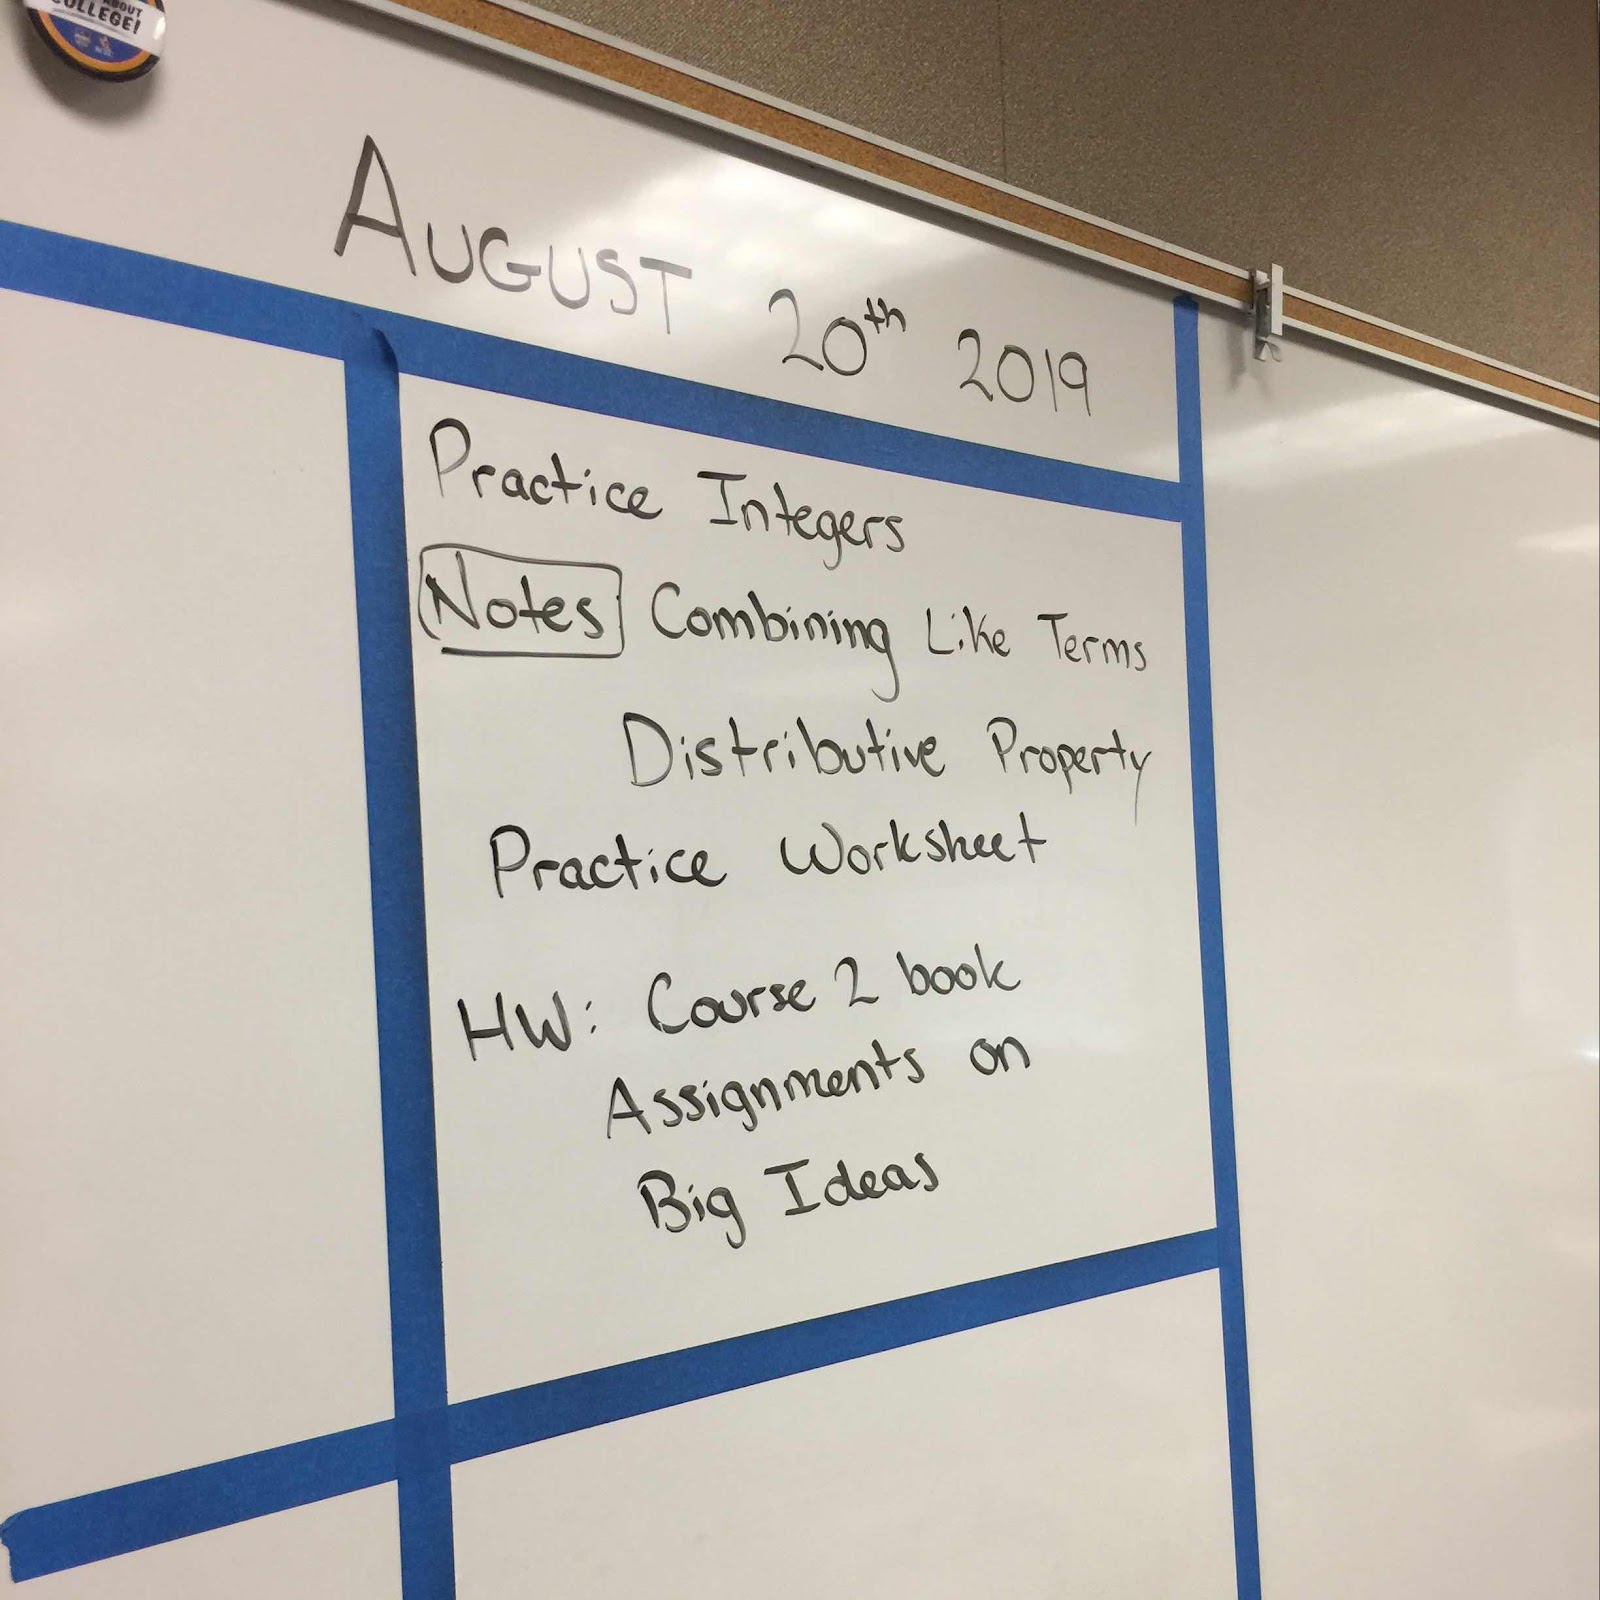 ABOUT
COLLEGE!
AUGUST 20th 2019
Practice Integers
Notes Combining Like Terms
Distributive Property
Practice Worksheet
HW: Course 2 book
Assignments on
Big Ideas